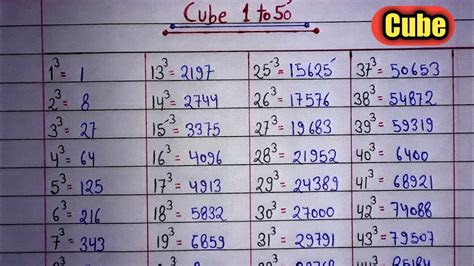 Cube 1 to 50
Cube
1³ = 1 13³ = 2197 25³ = 15625 37³ = 50653
2³ = 8 14³ = 2744 26³ = 17576 38³ = 54872
3³ = 27 15³ = 3375 27³ = 19683 39³ = 59319
4³ = 64 16³ = 4096 28³ = 21952 40³ = 6400
5³ = 125 17³ = 4913 29³ = 24389 41³ = 68921
6³ = 216 18³ = 5832 30³ = 27000 42³ = 74088
7³ = 343 19³ = 6859 31³ = 29791 43³ = 79507
85184